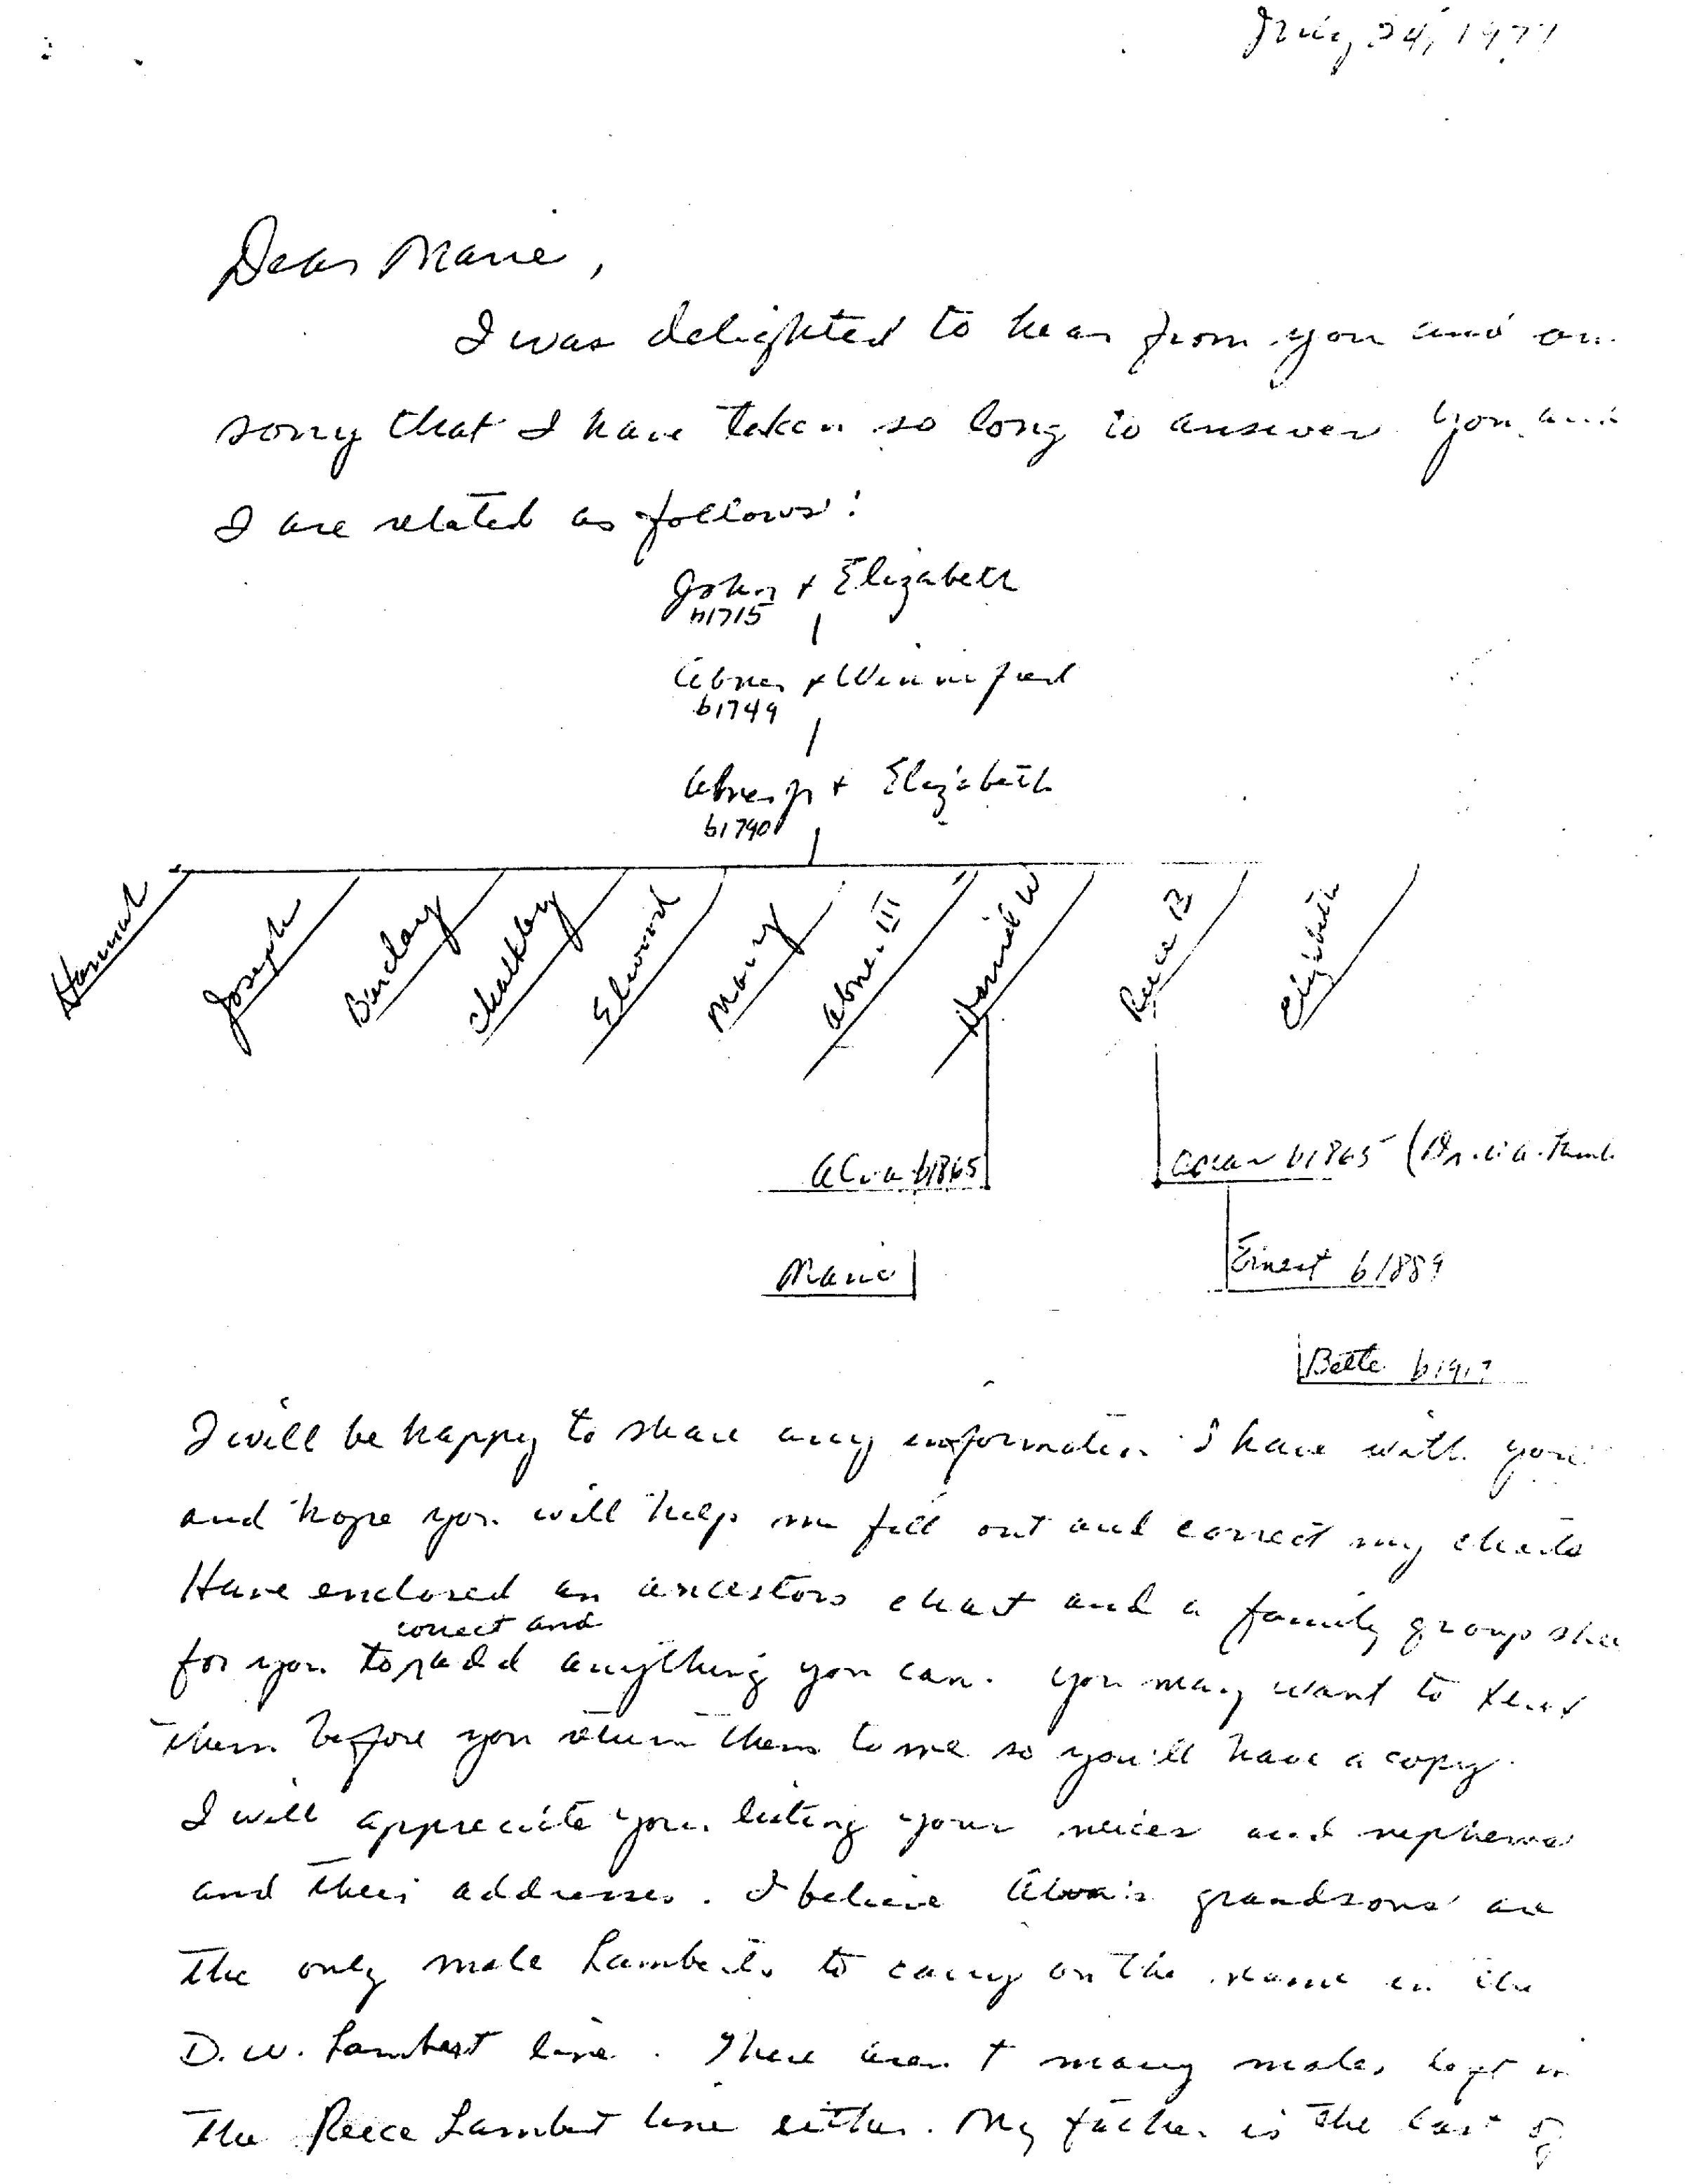 July 24, 1977
Dear Marie,
I was delighted to hear from you and am
sorry that I have taken so long to answer. You and
I are related as follows:
John + Elizabeth
b1715
Abner + Winnifred
b1749
Abner Jr + Elizabeth
b1790
Hannah Joseph Barclay Chalkley Elwood Mary Abner III Daniel W Reece B Elizabeth
Alva b1865 b1865 (Dr.
Marie Ernest b1889
Bette
I will be happy to share any information I have with you
and hope you will help me fill out and correct my charts
Have enclosed an ancestors chart and a family group
correct and
for you to add anything you can. You may want to
them before you return them to me so you'll have a copy.
I will appreciate your listing your neices and nephews
and their addresses. I believe Alva's grandsons are
the only male Lamberts to carry on the name in the
D.W. Lambert line. There aren't many males left in
the Reece Lambert line either. My father is the last of